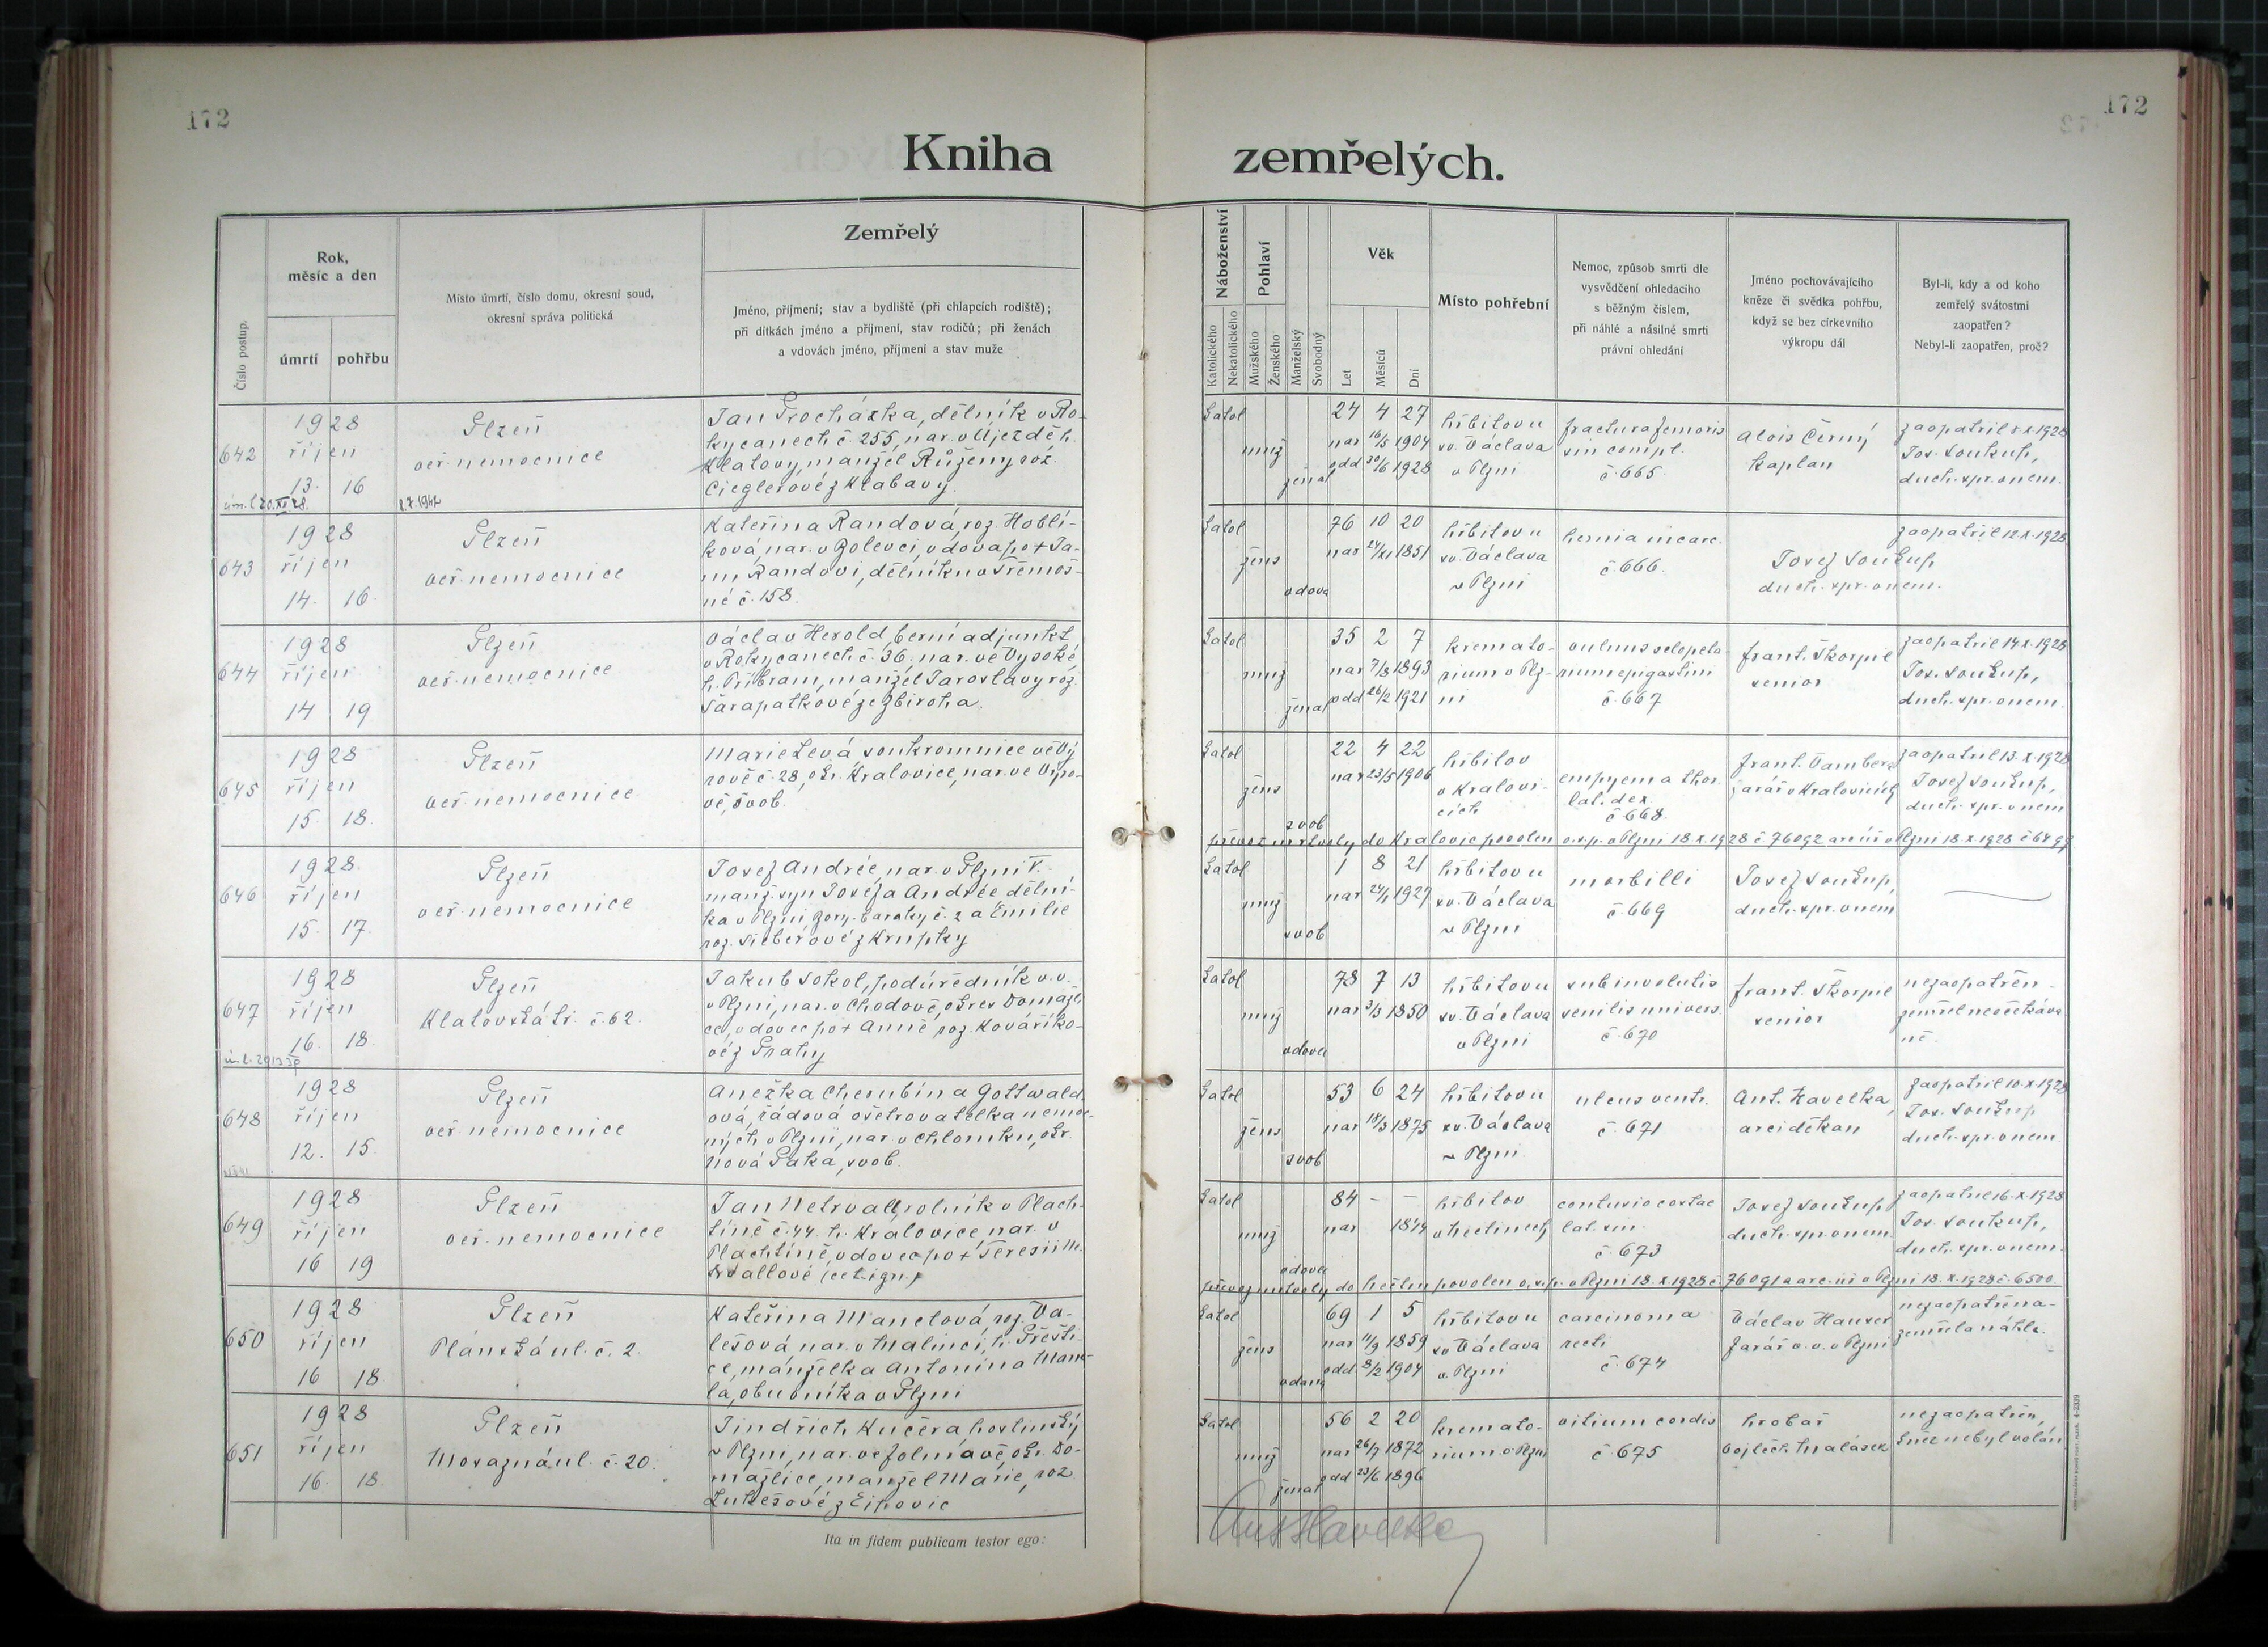 172
172
Kniha zemřelých.
Číslo postup.
Rok,
měsíc a den
úmrtí
pohřbu
Místo úmrtí, číslo domu, okresní soud,
okresní správa politická
Zemřelý
Jméno, příjmení; stav a bydliště (při chlapcích rodiště);
při dítkách jméno a příjmení, stav rodičů; při ženách
a vdovách jméno, příjmení a stav muže
Náboženství
Katolického
Nekatolického
Pohlaví
Mužského
Ženského
Manželský
Svobodný
Věk
Let
Měsíců
Dní
Místo pohřební
Nemoc, způsob smrti dle
vysvědčení ohledacího
s běžným číslem,
při náhlé a násilné smrti
právní ohledání
Jméno pochovávajícího
kněze či svědka pohřbu,
když se bez církevního
výkropu dál
Byl-li, kdy a od koho
zemřelý svátostmi
zaopatřen?
Nebyl-li zaopatřen, proč?
642
1928
říjen
13. 16
Plzeň
veř. nemocnice
Jan Procházka, dělník v Ro-
kycanech č. 255, nar. v Újezdě h.
Klatovy, manžel Růženy roz.
Cieglerové z Klabavy.
katol
muž
ženat
24 4 27
nar 16/5 1904
odd 30/6 1928
hřbitov u
sv. Václava
v Plzni
fractura femoris
sin compl.
č. 665.
Alois Černý
kaplan
zaopatřil 8 X 1928
Jos. Soukup,
duch. spr. v nem.
643
1928
říjen
14. 16.
Plzeň
veř. nemocnice
Kateřina Randová, roz. Hoblí-
ková, nar. v Bolevci, vdova po + Ja-
nu Randovi, dělníku v Třemoš-
né č. 158.
katol
žens
vdova
76 10 20
nar 24/XI 1851
hřbitov u
sv. Václava
v Plzni
hernia incarc.
č. 666.
Josef Soukup,
duch. spr. v nem.
zaopatřil 12. X. 1928
644
1928
říjen
14 19
Plzeň
veř. nemocnice
Václav Herold, berní adjunkt
v Rokycanech č. 36. nar. ve Vysoké,
h. Příbram, manžel Jaroslavy roz.
Šarapatkové ze Zbiroha.
katol
muž
ženat
35 2 7
nar 7/8 1893
odd 26/2 1921
kremato-
rium v Plz-
ni
vulnus sclopeta-
rium epigastrii
č. 667
Frant. Škorpil
senior
zaopatřil 14 X. 1928
Jos. Soukup,
duch. spr. v nem.
645
1928
říjen
15. 18.
Plzeň
veř. nemocnice
Marie Levá soukromnice ve Vý
rově č. 28, okr. Kralovice, nar. ve Výro-
vě, svob.
katol
žens
svob
22 4 22
nar 23/5 1906
hřbitov
v Kralovi-
cích
empyema thor.
lat. dex
č. 668.
Frant. Vambera
farář v Kralovicích
zaopatřil 13. X. 1928
Josef Soukup,
duch. spr. v nem
převoz mrtvoly do Kralovic povolen o.s.p. v Plzni 18. X. 1928 č 76092
646
1928.
říjen
15. 17.
Plzeň
veř. nemocnice
Josef Andrée, nar. v Plzni V.
manž. syn Josefa Andrée dělní-
ka v Plzni Bory-baraky č. 2 a Emilie
roz. Sieberové z Krupky
katol
muž
svob
1 8 21
nar 24/1 1927
hřbitov u
sv. Václava
v Plzni
morbilli
č. 669
Josef Soukup,
duch. spr. v nem
647
1928
říjen
16. 18.
Plzeň
Klatovská tř. č. 62.
Jakub Sokol, podúředník v.v.
v Plzni, nar. v Chodově, okres Domažli
ce, vdovec po + Anně, roz. Kováříko-
vé z Prahy
katol
muž
vdovec
78 7 13
nar 3/3 1850
hřbitov u
sv. Václava
v Plzni
subinvolutio
senilis univers.
č. 670
Frant. Škorpil
senior
nezaopatřen -
zemřel neočekáva
ně.
648
1928
říjen
12. 15.
Plzeň
veř. nemocnice
Anežka Cherubína Gottwald
ová, řádová ošetrovatelka nemoc-
ných v Plzni, nar. v Chlomku, okr.
Nová Paka, svob.
katol
žens
svob
53 6 24
nar 18/3 1875
hřbitov u
sv. Václava
v Plzni.
ulcus ventr.
č. 671
Ant. Havelka,
arciděkan
zaopatřil 10. X. 1928
Jos. Soukup
duch. spr. v nem.
649
1928
říjen
16 19
Plzeň
veř. nemocnice
Jan Netrvall, rolník v Plach-
tíně č. 44. h. Kralovice nar. v
Plachtíně, vdovec po + Teresii
katol
muž
vdovec
84 - -
nar 1844
hřbitov
v Hečtinech
contusio costae
lat. sin.
č. 673
Josef Soukup
duch. spr. v nem.
zaopatřil 16. X. 1928
Jos. Soukup,
duch. spr. v nem.
převoz mrtvoly do Hečtin povolen o.s.p. v Plzni 18. X. 1928 č. 76091
650
1928
říjen
16 18.
Plzeň
Plánská ul. č. 2.
Kateřina Manclová, roz. Va-
lešová, nar. v Malinci, h. Přešti-
ce, manželka Antonína Manc-
la, obuvníka v Plzni
katol
žens
vdaná
69 1 5
nar 11/9 1859
odd 8/2 1904
hřbitov u
sv Václava
v Plzni
carcinoma
recti
č. 674
Václav Hauser
farář v.v. v Plzni
nezaopatřena -
zemřela náhle.
651
1928
říjen
16. 18.
Plzeň
č. 20.
Jindřich Kučera, hostinský
v Plzni, nar. ve Folmavě, okr. Do-
mažlice, manžel Marie, roz.
Lukešové z Ejpovic
katol
muž
ženat
56 2 20
nar 26/7 1872
odd 23/6 1896
kremato-
rium v Plzni
vitium cordis
č. 675
hrobař
Vojtěch Malásek
nezaopatřen,
kněz nebyl volán
Ita in fidem publicam testor ego:
Ant Havelka